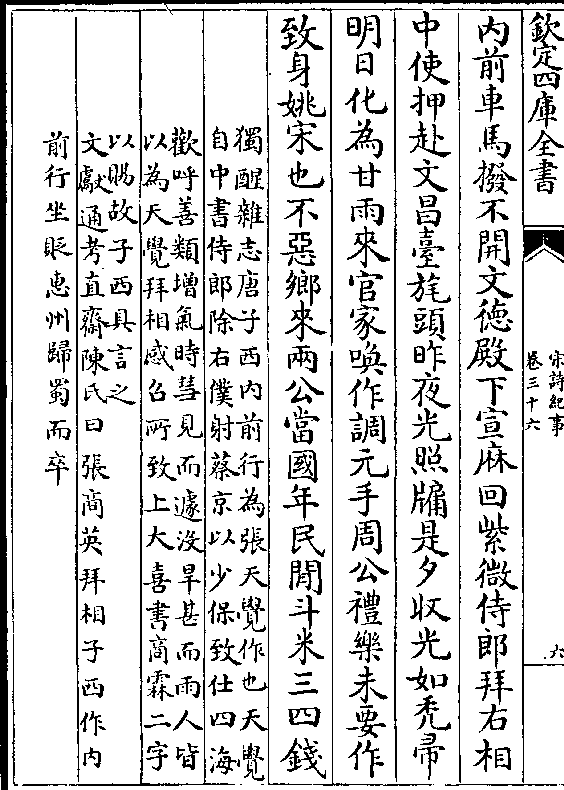 欽定四庫全書
宋詩紀事
卷三十六
六
内前車馬撥不開文德殿下宣麻回紫微侍郎拜右相
中使押赴文昌臺旄頭昨夜光照牖是夕收光如禿帚
明日化為甘雨來官家喚作調元手周公禮樂未要作
致身姚宋也不惡鄉來兩公當國年民間斗米三四錢
獨醒雜志唐子西内前行為張天覺作也天覺
自中書侍郎除右僕射蔡京以少保致仕四海
歡呼善類增氣時彗見而遽没旱甚而雨人皆
以為天覺拜相感召所致上大喜書商霖二字
以賜故子西具言之
文獻通考直齋陳氏曰張商英拜相子西作内
前行坐貶惠州歸蜀而卒